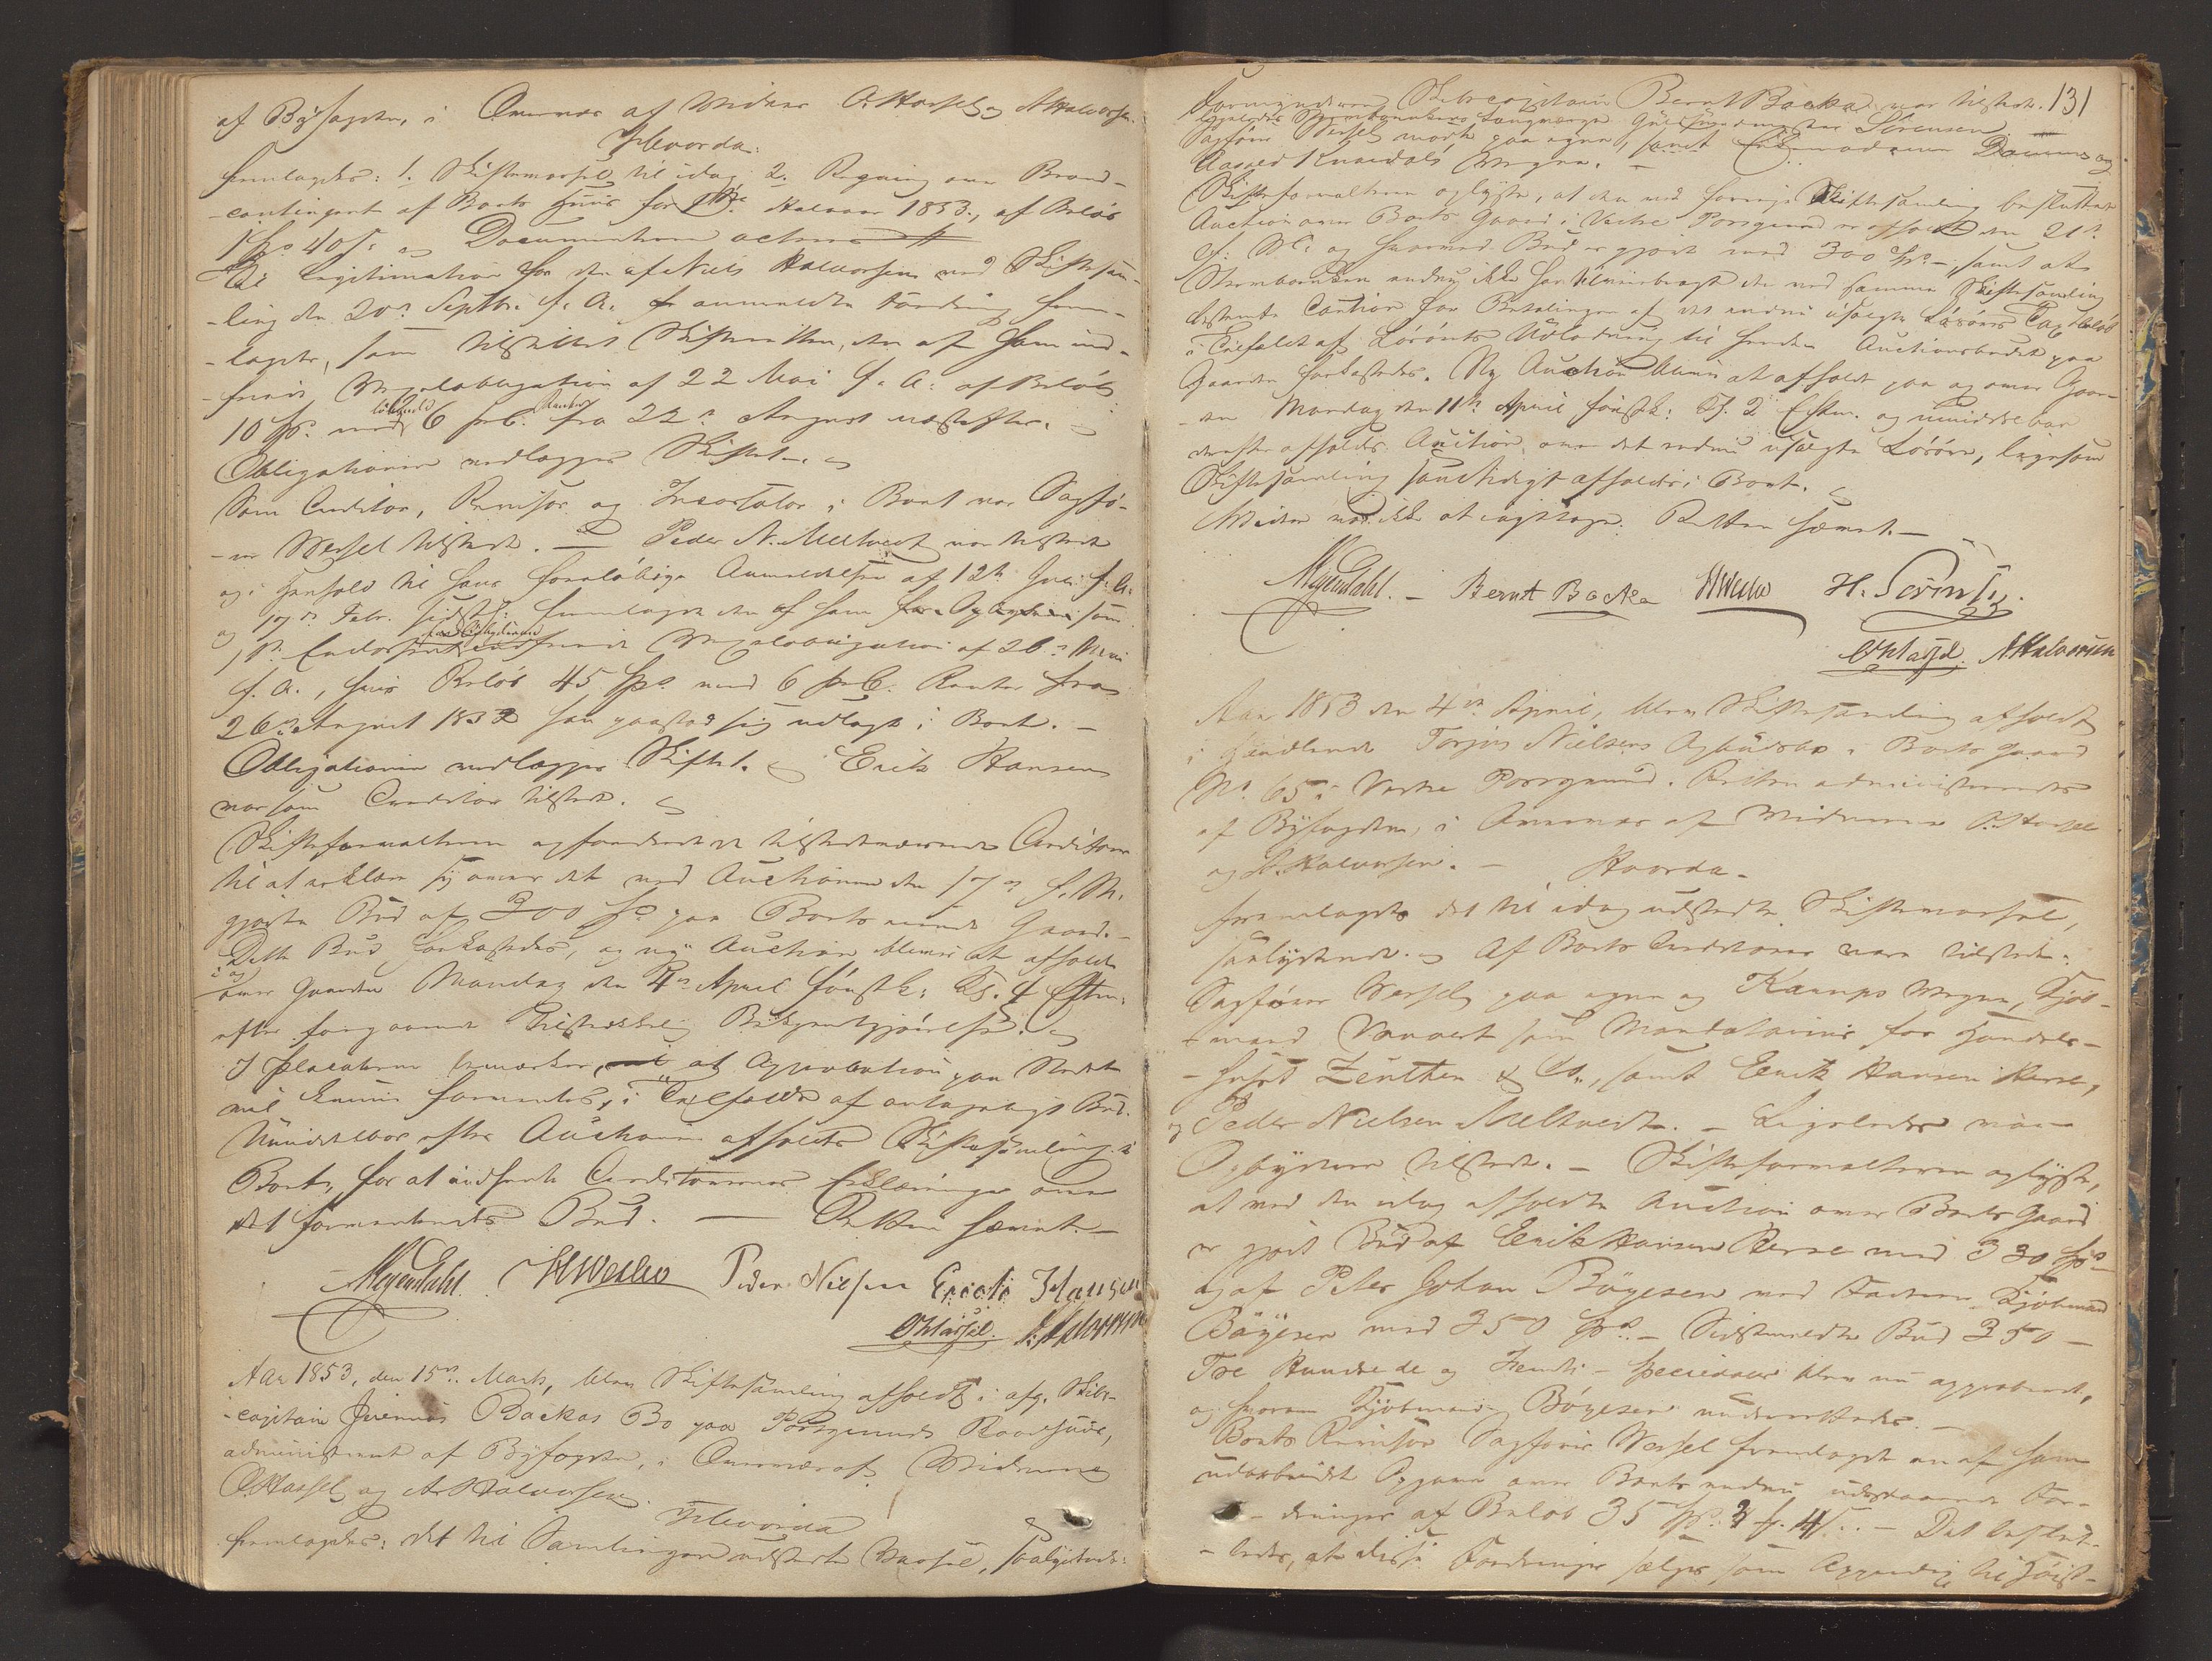 af Byfogden, i Overvær af Vidner O. Hassel og A Halvorsen.
Hvorda:
fremlagdes: 1. Skiftemarsel til idag 2. Regning over Brand-
-contingent af Boets Huus for 1ste Halvaar 1853., af Beløb
1 Spd 40 s. Documenterne acteres
Til Legitimation for den af Niels Halvorsen ved Skiftesam-
-ling den 20de Septbr. f. A. anmeldte Fordring frem-
-lagdes, som tilstillet Skifteretten, den af ham ind-
Vexelobligation af 22 Mai f. A. af Beløb
10 Spd. med 6 prC. Renter fra 22de August næstefter.
Obligationen vedlægges Skiftet.
Som Creditor, Revisor og Incassator i Boet var Sagfø-
-rer Wessel tilstede. — Peder N. Meltvedt var tilstede
og i Henhold til hans foreløbige Anmeldelse af 12te
og Febr. sidstl. fremlagde den af ham som
Vexelobligation af 26de Mai
f. A., hvis Beløb 45 Spd med 6 prC. Renter fra
26de August 1852 han paastod sig udlagt i Boet. —
Obligationen vedlægges Skiftet. Erik Hansen
var som Creditor tilstede.
Skifteforvalteren opfordrede de tilstedeværende Creditorer
til at erklære sig over det ved Auctionen den 17de f. M.
gjorte Bud af 300 Spd paa Boets Gaard.
Dette Bud forkastedes, og ny Auction blev at afholde
i og
over Gaarden Mandag den 4de April førstk: Kl. 4 Efterm.
efter forgaaende tilstrækkelig Bekjendtgjørelse.
I Placaterne bemærkes, at Approbation paa Stedet
vil kunne forventes, i Tilfælde af antageligt Bud.
Umiddelbar efter Auctionen afholdes Skiftesamling i
Boet, for at indhente Creditorernes Erklæringer over
det forventende Bud. — Retten hævet. —
Mejendahl. HWessel Peder Nielsen Erick Hansen
OHassel. A. Halvorsen
Aar 1853, den 15de Marts, blev Skiftesamling afholdt i afg. Skibs-
-capitain Backas Bo paa Porsgrunds Raadhuus,
administreret af Byfogden, i Overvær af Vidnerne
O. Hassel og A Halvorsen.
Hvorda
fremlagdes: det til Samlingen udstedte Marsel, saalydende:
131
Formynderen Skibscapitain Bernt Backa var tilstede.
ligeledes Laugværge Guldsmedmester Sørensen.
Sagfører Wessel mødte paa egne, samt Damms og
Aasæd Knardals Vegne. —
Skifteforvalteren oplyste, at den ved forrige Skiftesamling besluttede
Auction over Boets Gaard i Vestre Porsgrund er afholdt den 21de
f. M. og hvorved Bud er gjort med 300 Spd —, samt at
endnu ikke har tilveiebragt den ved samme Skiftesamling
bestemte Caution for Betalingen af det endnu usolgte Løsøres Taxtbeløb
i Tilfælde af Løsørets Udlodning til hende. Auctionsbudet paa
Gaarden forkastedes. Ny Auction bliver at afholde paa og over Gaar-
den Mandag den 11te April førstk: Kl. 2 Efterm. og umiddelbar
derefter afholdes Auction over det endnu usolgte Løsøre, ligesom
Skiftesamling samtidigt afholdes i Boet.
Videre var ikke at iagttage. Retten hævet. —
Mejendahl. — Bernt Backa HWessel H. Sørensen.
OHassel. AHalvorsen
Aar 1853 den 4de April, blev Skiftesamling afholdt
i Handlende Torjus Nielsens Opbudsbo i Boets Gaard
No. 65 i Vestre Porsgrund. Retten administreredes
af Byfogden, i Overvær af Vidnerne O. Hassel
og A. Halvorsen. — Hvorda.
fremlagdes det til idag udstedte Skiftemarsel,
saalydende. Af Boets Creditorer vare tilstede:
Sagfører Wessel paa egne og Kamps Vegne, Kjøb-
-mand Vauvert som Mandatarius for Handels-
-huset Zeuthen & Co., samt Erick Hansen Herre,
og Peder Nielsen Meltvedt. — Ligeledes var
Opbyderen tilstede. — Skifteforvalteren oplyste,
at ved den idag afholdte Auction over Boets Gaard
er gjort Bud af Erick Hansen Herre med 330 Spd
og af Peter Johan Bøyesen ved Faderen, Kjøbmand
Bøyesen med 350 Spd. — Sidstmeldte Bud 350 —
Tre Hundrede og Femti — Speciedaler blev nu approberet,
og hvorom Kjøbmand Bøyesen underrettedes. —
Boets Revisor Sagfører Wessel fremlagde en af ham
udarbeidet Opgave over Boets endnu udestaaende For-
-dringer af Beløb 35 Spd. — Det beslut-
-tedes, at disse Fordringer sælges som til Høist-